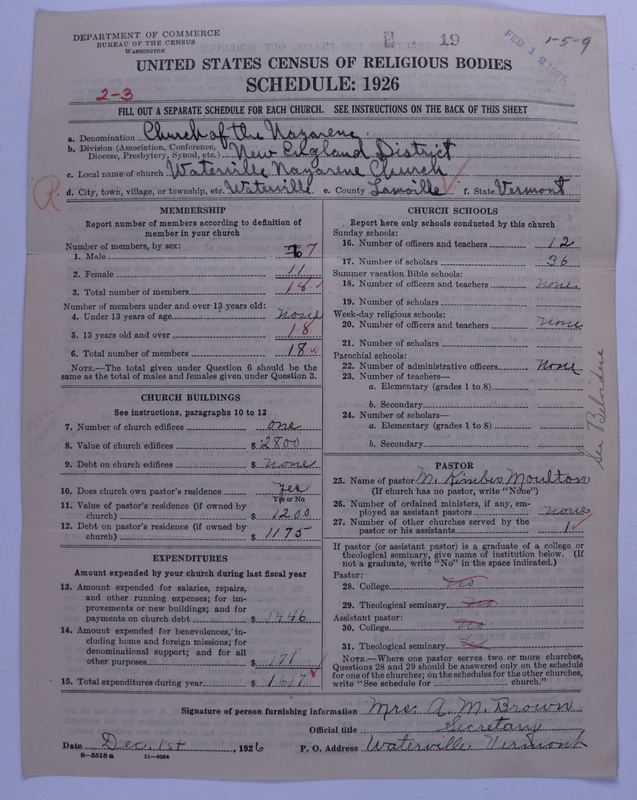 DEPARTMENT OF COMMERCE
BUREAU OF THE CENSUS
WASHINGTON
19
FEB 1
1-5-9
UNITED STATES CENSUS OF RELIGIOUS BODIES
SCHEDULE: 1926
2-3
FILL OUT A SEPARATE SCHEDULE FOR EACH CHURCH. SEE INSTRUCTIONS ON THE BACK OF THIS SHEET
a. Denomination Church of the Nazarene
b. Division (Association, Conference, Diocese, Presbytery, Synod, etc.) New England District
c. Local name of church Waterville Nazarene Church
d. City, town, village, or township, etc. Waterville e. County Lamoille f. State Vermont
R
MEMBERSHIP
Report number of members according to definition of
member in your church
Number of members, by sex:
1. Male 7
2. Female 11
3. Total number of members 18
Number of members under and over 13 years old:
4. Under 13 years of age none
5. 13 years old and over 18
6. Total number of members 18
NOTE.—The total given under Question 6 should be the
same as the total of males and females given under Question 3.
CHURCH BUILDINGS
See instructions, paragraphs 10 to 12
7. Number of church edifices one
8. Value of church edifices $ 2800
9. Debt on church edifices $ none
10. Does church own pastor's residence yes
Yes or No
11. Value of pastor's residence (if owned by
church) $ 1200
12. Debt on pastor's residence (if owned by
church) $ 1175
EXPENDITURES
Amount expended by your church during last fiscal year
13. Amount expended for salaries, repairs,
and other running expenses; for im-
provements or new buildings; and for
payments on church debt $ 1446
14. Amount expended for benevolences, in-
cluding home and foreign missions; for
denominational support; and for all
other purposes $ 171
15. Total expenditures during year $ 1617
CHURCH SCHOOLS
Report here only schools conducted by this church
Sunday schools:
16. Number of officers and teachers 12
17. Number of scholars 36
Summer vacation Bible schools:
18. Number of officers and teachers none
19. Number of scholars
Week-day religious schools:
20. Number of officers and teachers none
21. Number of scholars
Parochial schools:
22. Number of administrative officers None
23. Number of teachers—
a. Elementary (grades 1 to 8)
b. Secondary
24. Number of scholars—
a. Elementary (grades 1 to 8)
b. Secondary
See Belvidere
PASTOR
25. Name of pastor M. Kimber Moulton
(If church has no pastor, write "None")
26. Number of ordained ministers, if any, em-
ployed as assistant pastors none
27. Number of other churches served by the
pastor or his assistants 1
If pastor (or assistant pastor) is a graduate of a college or
theological seminary, give name of institution below. (If
not a graduate, write "No" in the space indicated.)
Pastor:
28. College
29. Theological seminary
Assistant pastor:
30. College
31. Theological seminary
NOTE.—Where one pastor serves two or more churches,
Questions 28 and 29 should be answered only on the schedule
for one of the churches; on the schedules for the other churches,
write "See schedule for church."
Signature of person furnishing information Mrs. A. M. Brown
Official title Secretary
Date Dec. 1st, 1926 P. O. Address Waterville, Vermont
8-5518 a 11-9064